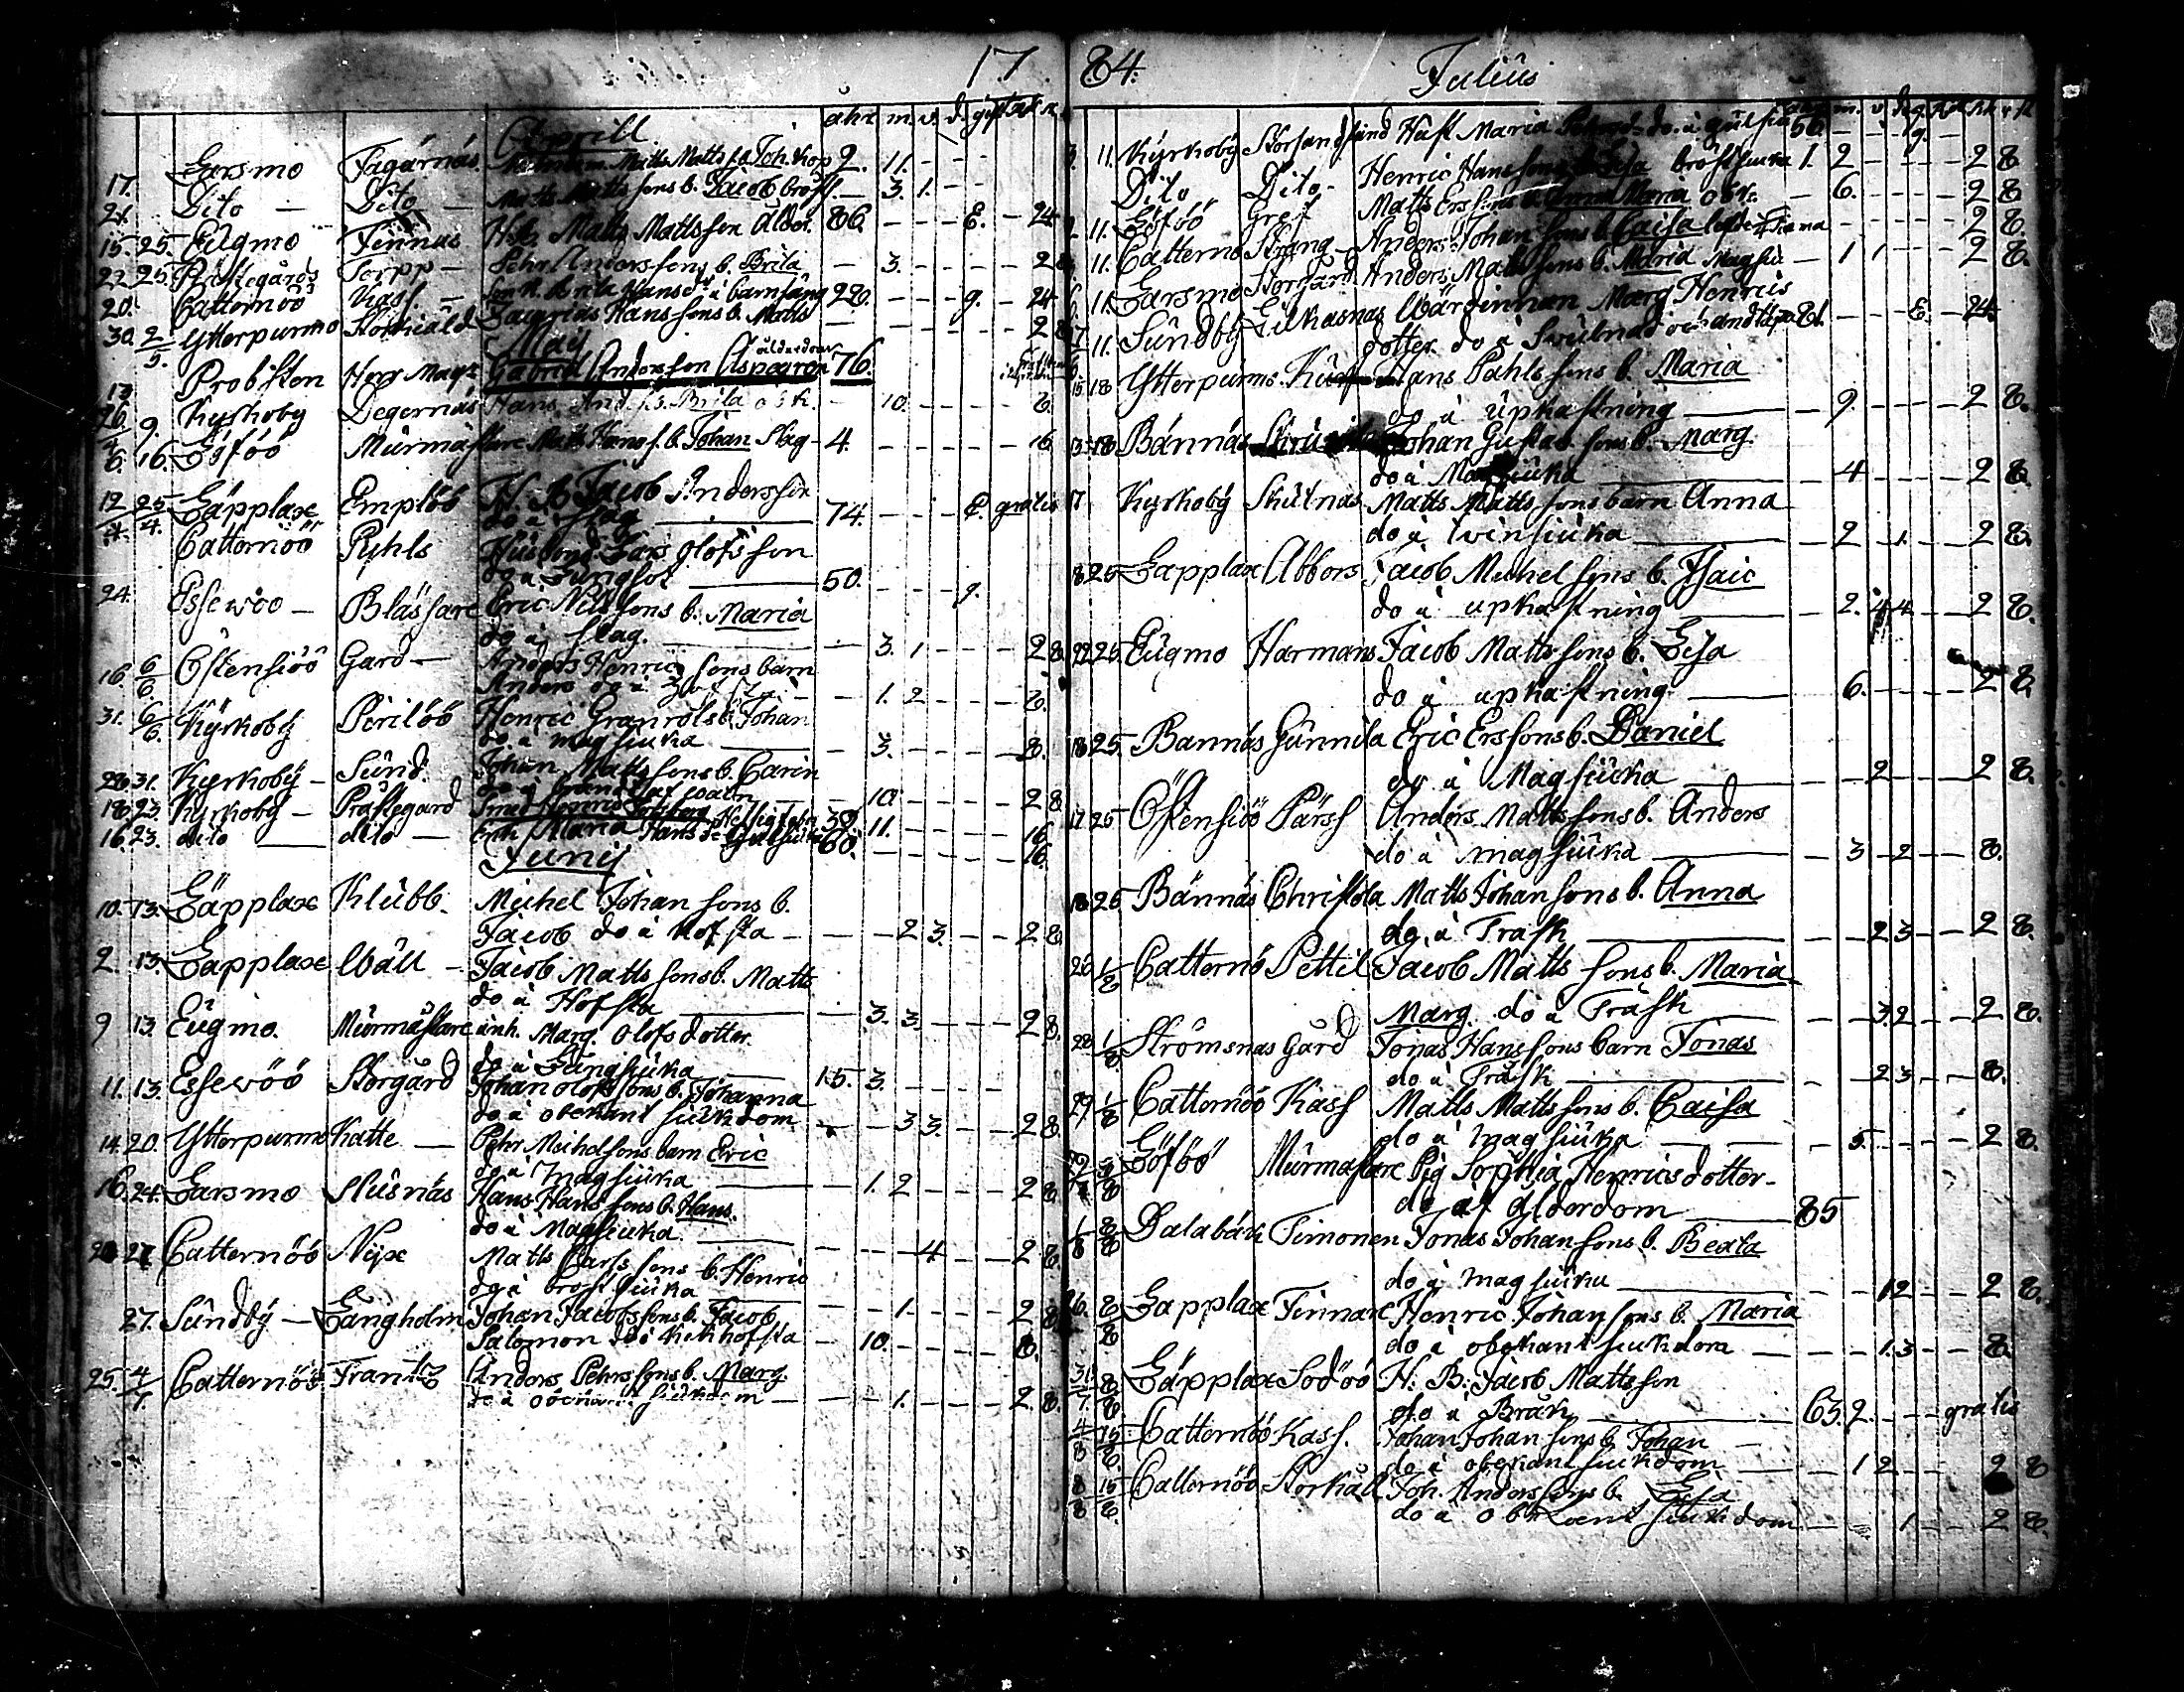 17
Aprill
åhr m. v. d. gift
17. Larsmo Fagernäs. Matts Matts s. b. Joh. Kop 2. 11. - -
21. Dito — Dito — Matts Matts sons b. Jacob bröst. - 3. 1. - -
15. 25. Eugmo Finnas Matts Mattsson ålder. 86. - - - E. - 24
22 25. Prästegårds Torpp - Pehr Anderssons b. Brita - 3. - - - - 2 8
20. Catternöö Kass. - Brita Hansd. i barnsäng 28. - - - g. - 24
30. 2/5. Ytterpurmo Zacarias Hans sons b. Matts - - - - - 2 8
May
13. Probsten Herr Mag. Gabriel Andersson Aspegren ålderdom 76.
26/4 9. Kyrkoby Degernäs Hans And. s. b. Brita obk. - 10. - - - - 8.
8. 16. Löföö Murmästare Matts Hans s. b. Johan Slag - 4. - - - - - 16
12/4 25/4. Läpplax Emplöö H. B. Jacob Andersson
do à slag — 74. - - - E. gratis
Catternöö Pyhls Husbond. Lars Olofsson
do à Lungsot — 50. - - - g.
24. Essewöö - Blässare Eric Nils sons b. Maria
do à slag. — - 3. 1 - - - 2 8
16. 6/6. Östensiöö Gard - Anders Henrics sons barn
Anders do à - - 1. 2 - - - 8.
31. 6/6. Kyrkoby Pirilöö Henric Granrots b. Johan
do à magsiuka — - 3. - - - 8.
28. 31. Kyrkoby - Sund. Johan Matts sons b. Carin
do à - 10. - - - - 2 8
18. 23. Kyrkoby - Prästegard 39. 11. - - - - 16
16. 23. dito — dito — Enk. Maria Hans d. Gulsiuka 68. - - - - 16.
Junij
10. 13. Läpplax Klubb. Michel Johan sons b.
Jacob do à Hofsta - - - 2 3. - - 2 8
2. 13. Läpplax Wäll - Jacob Matts sons b. Matts
do à Hofsta — - 3. 3. - - - 2 8.
9 13. Eugmo. Murmästare änh. Marg. Olofs dotter.
do à Lungsiuka — 15. 3. - - - -
11. 13. Essewöö Storgård Johan Olofs sons b. Johanna
do à obekant siukdom - - 3 3. - - 2 8.
14. 20. Ytterpurmo Katte — Pehr Michelsons barn Eric
do à magsiuka — - 1. 2 - - - 2 8.
16. 24. Larsmo Slusnäs Hans Hans sons b. Hans.
do à Magsiuka. — - - - 4 - - 2 8.
27 Catternöö Nyx Matts Lars sons b. Henric
do à bröstsiuka — - - 1. - - - - 2 8.
27. Sundby - Långholm Johan Jacobs sons b. Jacob
Salomon do à kikhofsta - 10. - - - - 8.
25. 4/7. Catternöö Frantz Anders Pehrs sons b. Marg.
do à obekant siukdom - - 1. - - - 2 8.
84. Julius
11. Kyrkoby Storsandsund Hust. Maria do. à gulsiu 56. - - g. -
Dito Dito - Henric Hans sons b. Lisa bröstsiuka 1. 2 - - - - 2 8
11. Löföö Gref Matts Ers sons b. Anna Maria obk. - 6. - - - - 2 8
11. Catternö Strang - Anders Johan sons b. Caisa - - - - 2 8.
11. Larsmo Storgård Anders Matts sons b. Maria magsiu - 1 1 - - - 2 8.
11. Sundby Lilkasnas Wärdinnan Marg Henrics
dotter do à Swulnad och andtäppa 81. - - - E. - 24.
15. 18 Ytterpurmo. Hans Pahls sons b. Maria
do à upkastning — - 9. - - - - 2 8.
13. 18 Bännäs Johan Gustavs sons b. Marg.
do à Magsiuka — - 4 - - - - 2 8.
17 Kyrkoby Skutnas Matts Matts sons barn Anna
do à twinsiuka — - 2 - 1. - - 2 8.
8 25 Läpplax Abbors Jacob Michel sons b. Isaic
do à upkastning — - 2. 4 - - - 2 8.
22 25. Eugmo Harmans Jacob Matts sons b. Lisa
do à upkastning — - 6. - - - - 2 8.
18 25. Bannäs Gunnila Eric Ers sons b. Daniel
do à Magsiuka — - - 2 - - - 2 8.
17 25 Östensiöö Pärss Anders Matts sons b. Anders
do à magsiuka — - 3 - 2 - - 8.
18 25 Bännäs Christola Matts Johan sons b. Anna
do à Trask — - - 2 3 - - 2 8.
26 1/8 Catternö Pettil Jacob Matts sons b. Maria
Marg. do à Träsk — - - 3. 2 - - 2 8.
28 1/8 Strömsnas Gård Jonas Hans sons barn Jonas
do à Träsk — - - 2 3 - - 8.
29 1/8 Catternöö Kass Matts Matts sons b. Caisa
do à magsiuka — - 5. - - - - 2 8.
Löföö Murmastare Pig Sophia Henrics dotter -
do af ålderdom — 85
1/8 8/8 Dalabäck Timonen Jonas Johan sons b. Beata
do à magsiuka — - - 1 2 - - 2 8.
8/8 Läpplax Finnäs Henric Johan sons b. Maria
do à obekant siukdom - - - 1. 3 - - 8.
31/7 8/8 Läpplax Sodöö H: B: Jacob Mattsson
do à Bråk — 63. 2. - - - gratis
4/8 15/8. Catternöö Kass. Johan Johan sons b. Johan
do à obekant siukdom — - 1 2 - - - 2 8
8/8 15/8. Catternöö Storkåll Joh. Anders sons b. Lisa
do à obekant siukdom. - - - 1 - - 2 8.